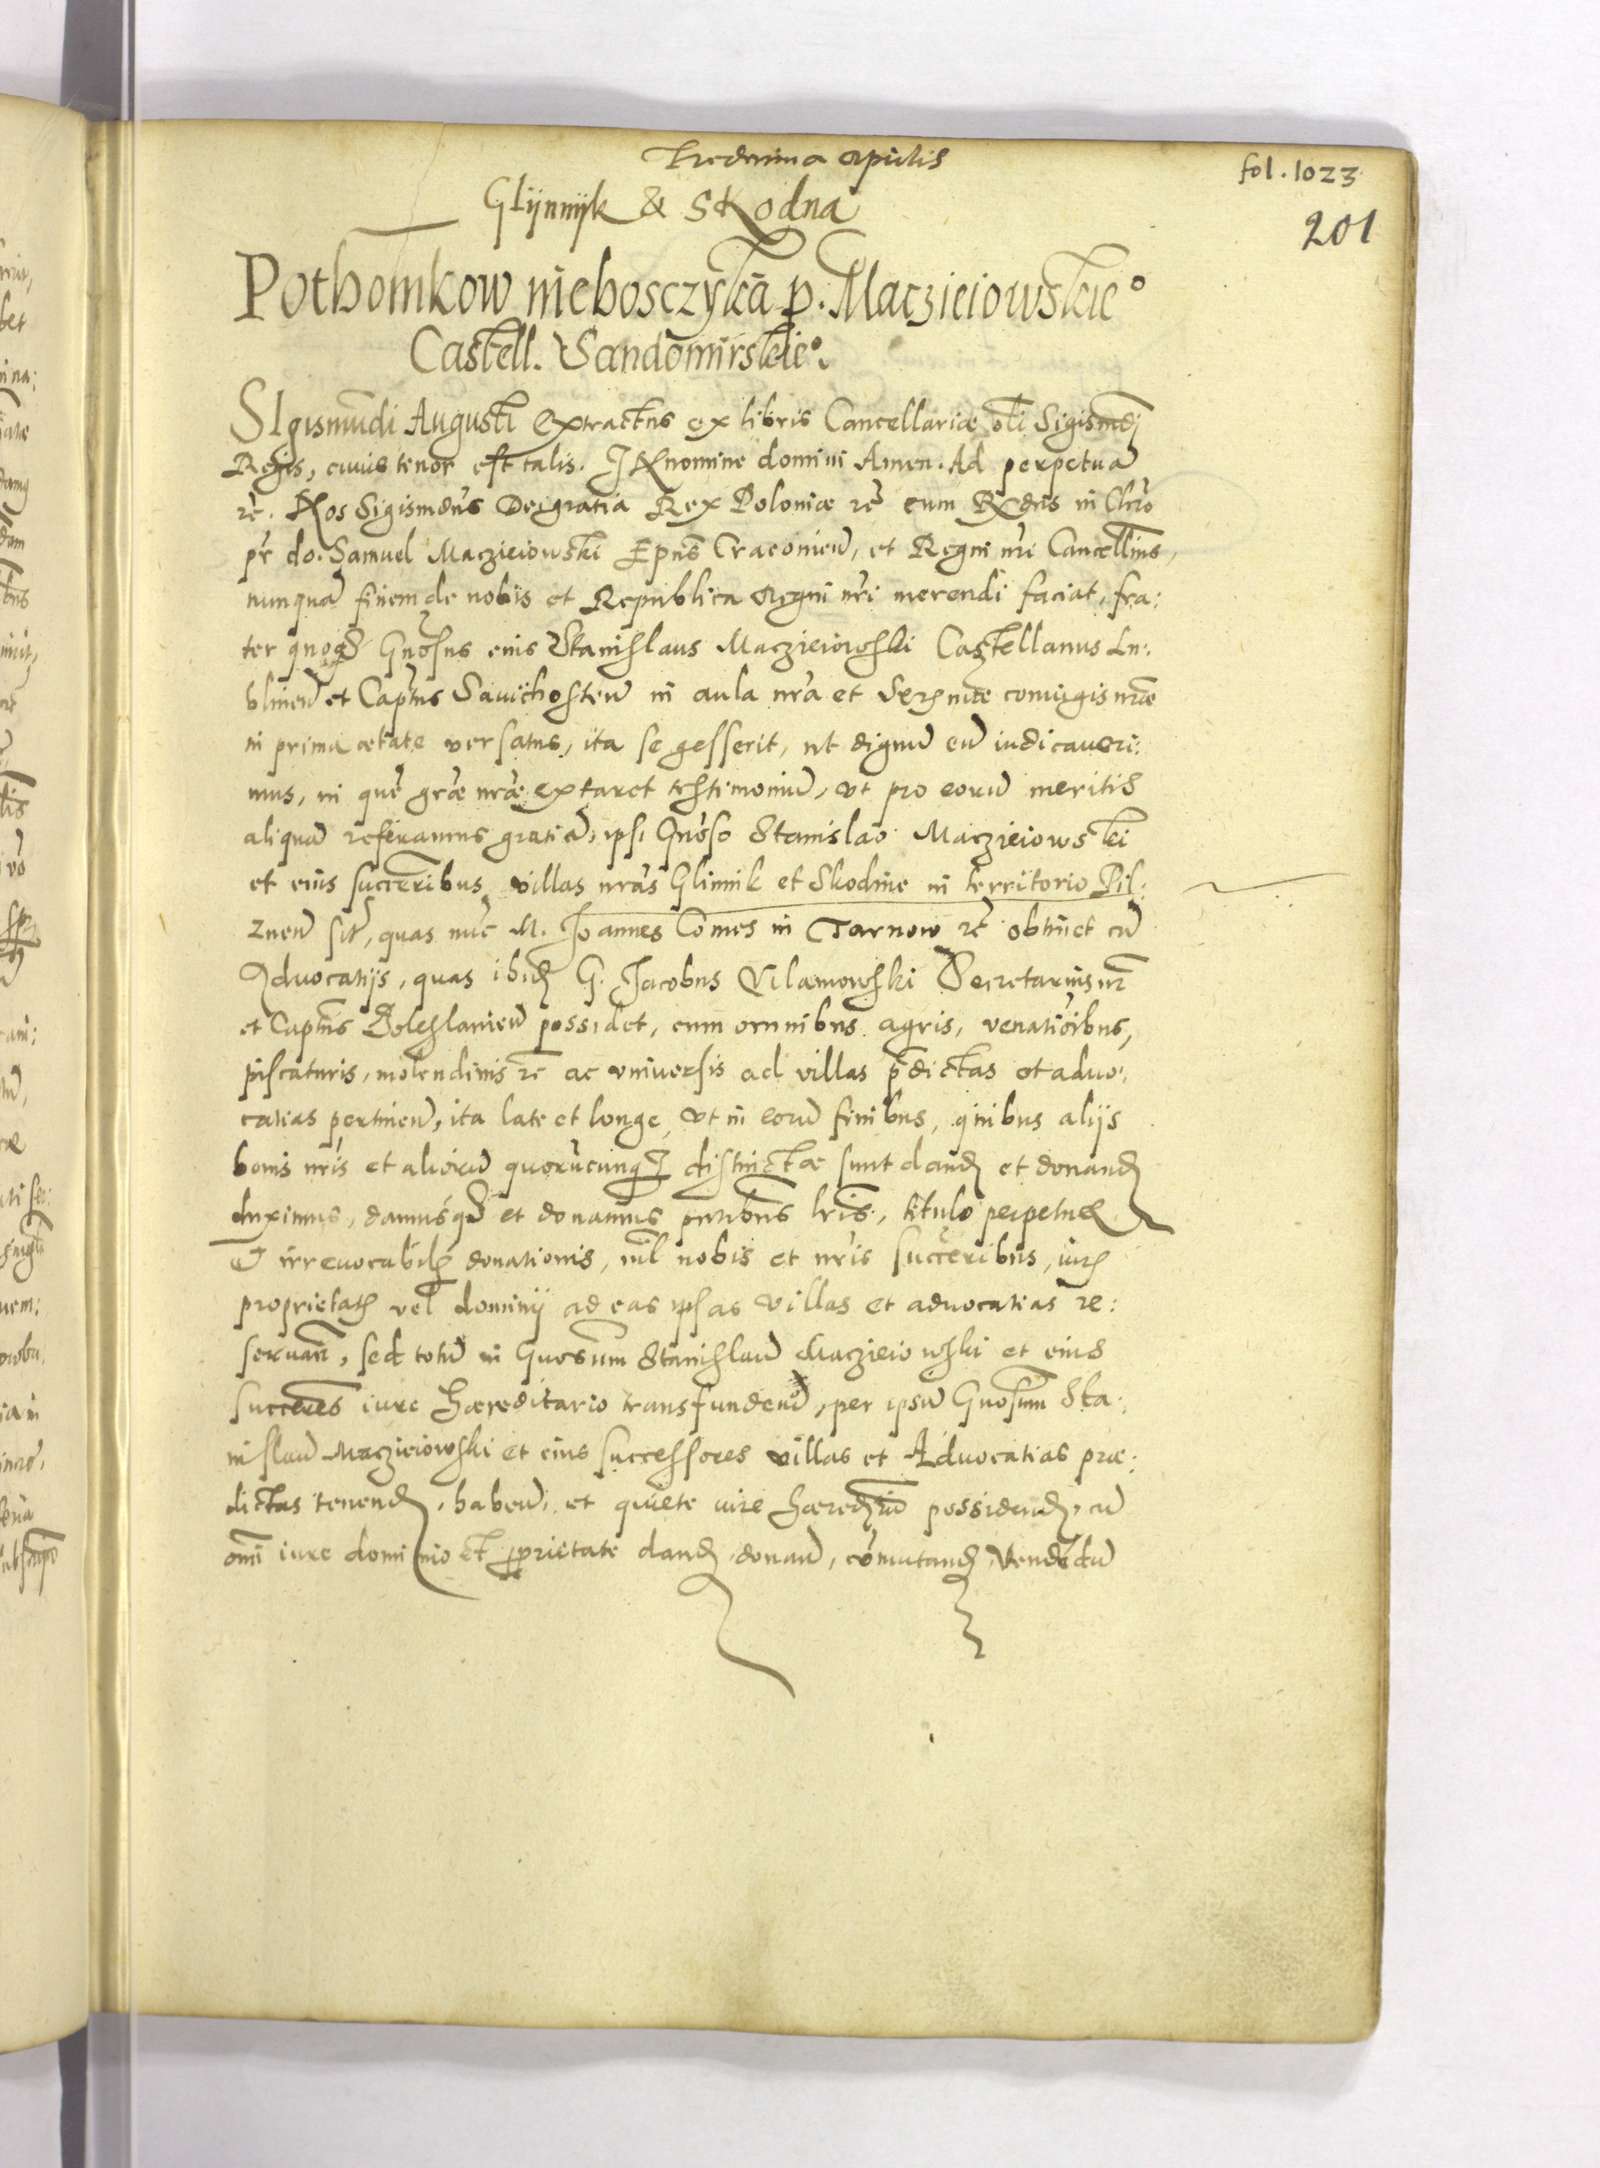 Tredecima aprilis
fol. 1023
Glÿnnÿk & Skodna
201
Pothomkow nieboszczÿka p. Maczieiowskie°
Castell. Sandomirskie°.
SIgismūdi Augusti Extractus ex libris Cancellariæ oli Sigismūdi
Regis, cuius tenor est talis. IN nomine domini Amen. Ad perpetuā
rē. Nos Sigismdūs Dei gratia Rex Poloniæ rē cum Rxdus in Chro
pr do. Samuel Maczieiowski Epus Cracouieñ, et Regni nri Cancellrius,
nunquā finem de nobis et Republica Regni nri merendi faciat, fra:
ter quoq Gnosus eius Stanislaus Maczieiowski Castellanus Lu:
blineñ et Captus Sauichosteñ in aula nra et Serenme coniugis nræ
in prima ætate versatus, ita se gesserit, ut dignū eū iudicaueri:
mus, in quē græ nræ extaret testimoniū, vt pro eorū meritis
aliquā referamus gratiā, ipsi Gnoso Stanislao Maczieiowski
et eius succeribus villas nras Glinnik et Skodne in territorio Pil:
zneñ sit, quas nuc M. Joannes Comes in Tarnow rē obtinet cū
Aduocatijs, quas ibid G. Jacobus Vilamowski Secretarius nr
et Captus Boleslauieñ possidet, cum omnibus agris, venatioibus,
piscaturis, molendinis rē ac vniuersis ad villas pdictas et aduo:
catias pertineñ, ita late et longe, vt in eorū finibus, quibus alijs
bonis nris et aliorū quorūcunq distinctæ sunt dand et donand
duximus, damusq et donamus pntibus lris, titulo perpetuæ
& irreuocabilis donationis, nil nobis et nris succeribus, iuris
proprietatis vel dominij ad eas ipsas villas et aduocatias re:
seruañ, sed totū in Gnosum Stanislaū Maczieiowski et eius
succeres iure hæreditario transfundeñ, per ipsū Gnosum Sta:
nislaū Maczieiowski et eius successores villas et Aduocatias præ:
dictas tenend, habeñ, et quiete iure hæredrio possidend, cū
omi iure dominio et pprietate dand, donañ, comutand, vendēdū